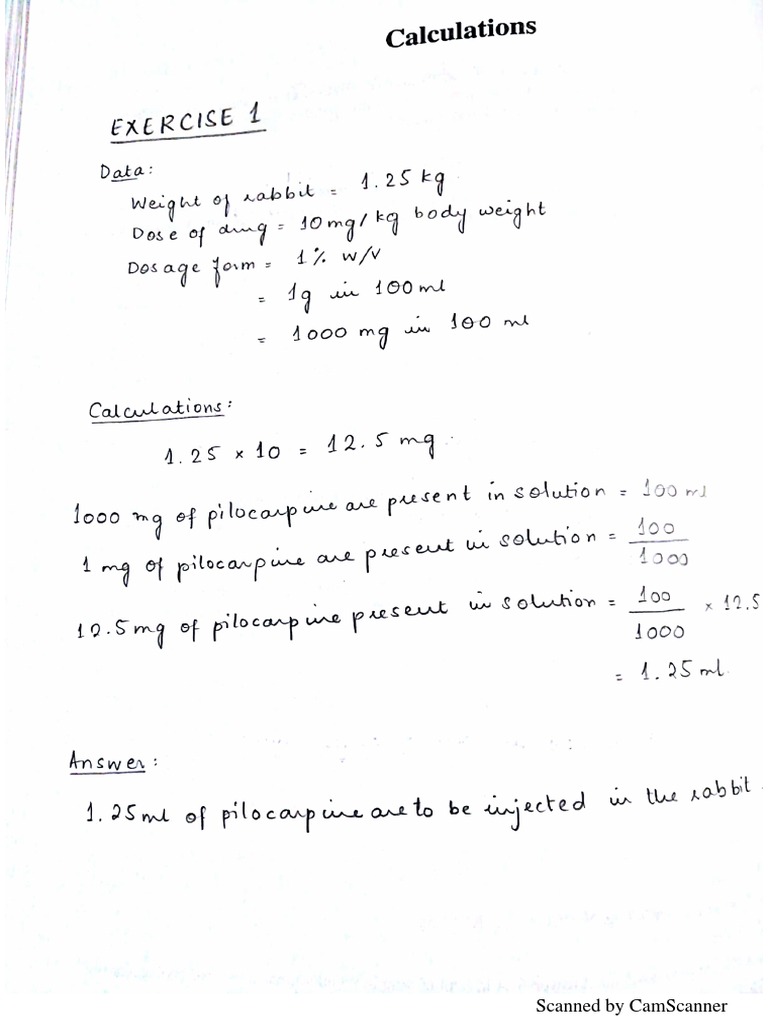 Calculations
EXERCISE 1
Data:
Weight of rabbit = 1.25 kg
Dose of drug = 10mg/kg body weight
Dosage form = 1% w/v
= 1g in 100ml
= 1000 mg in 100 ml
Calculations:
1.25 × 10 = 12.5 mg.
1000 mg of pilocarpine are present in solution = 100 ml
1 mg of pilocarpine are present in solution = 100/1000
12.5mg of pilocarpine present in solution = 100/1000 × 12.5
= 1.25 ml.
Answer:
1.25ml of pilocarpine are to be injected in the rabbit.
Scanned by CamScanner